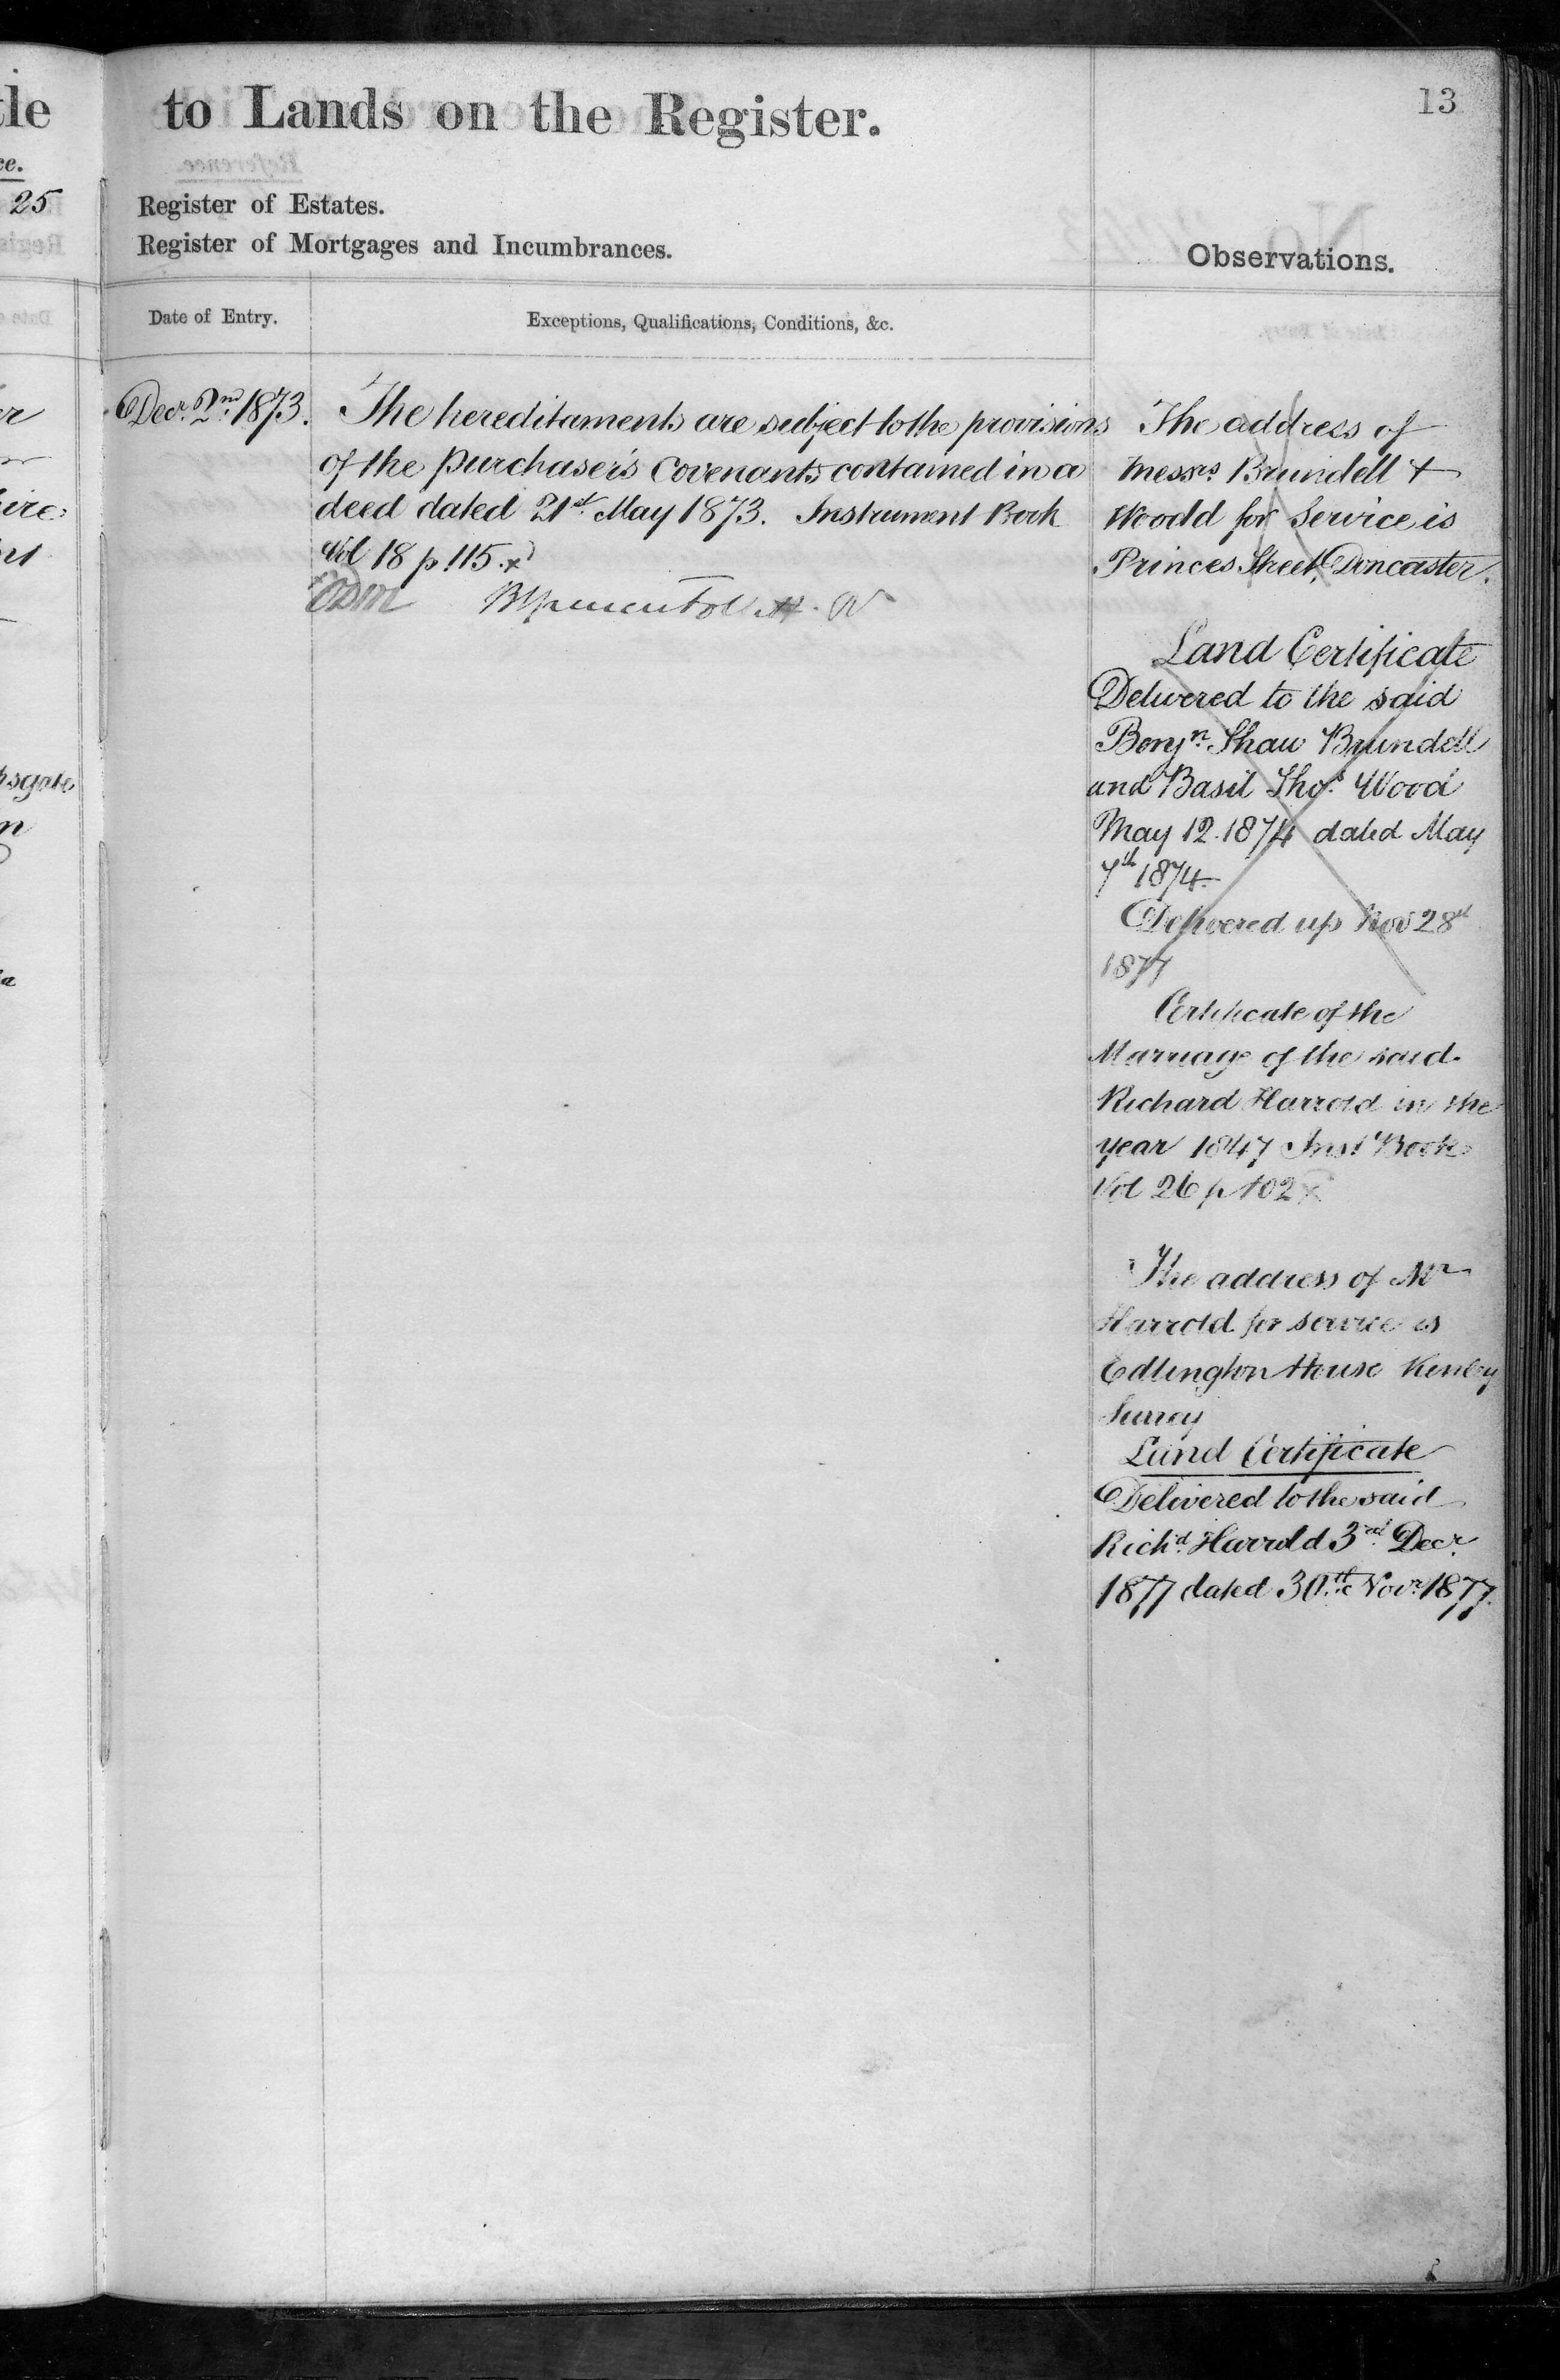 tle
ce.
25
to Lands on the Register.
13
Register of Estates.
Register of Mortgages and Incumbrances.
Observations.
Date of Entry.
Exceptions, Qualifications, Conditions, &c.
Decr. 2nd. 1873.
The hereditaments are subject to the provisions
of the purchaser's Covenants contained in a
deed dated 21st May 1873. Instrument Book
Vol 18 p 115. x
The address of
Messrs. Brundell +
Woodd for Service is
Princes Street, Doncaster.
Land Certificate
Delivered to the said
Benjn. Shaw Brundell
and Basil Thos. Wood
May 12. 1874 dated May
7th 1874
Delivered up Nov 28th
1877
Certificate of the
Marriage of the said
Richard Harrold in the
year 1847 Inst Book
Vol 26 p 102 x
The address of Mr
Harrold for service is
Edlington House Kenley
Surrey
Land Certificate
Delivered to the said
Richd. Harrold 3rd. Decr.
1877 dated 30th. Novr. 1877.